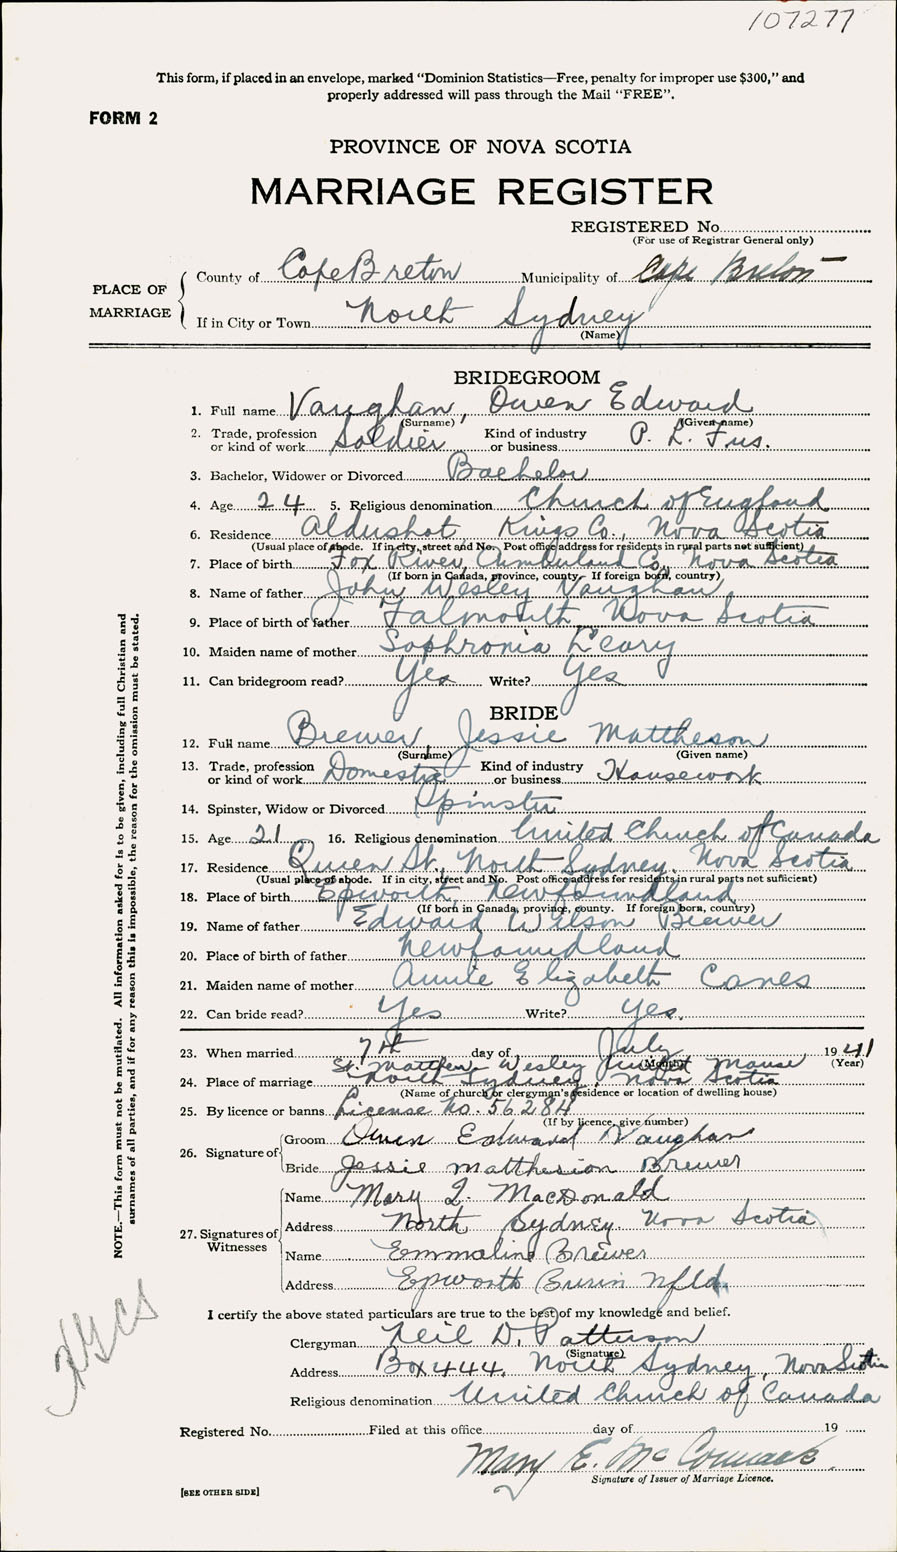 107277
This form, if placed in an envelope, marked "Dominion Statistics—Free, penalty for improper use $300," and
properly addressed will pass through the Mail "FREE".
FORM 2
PROVINCE OF NOVA SCOTIA
MARRIAGE REGISTER
REGISTERED No.
(For use of Registrar General only)
PLACE OF MARRIAGE
County of Cape Breton Municipality of Cape Breton
If in City or Town North Sydney
(Name)
BRIDEGROOM
1. Full name Vaughan, Owen Edward
(Surname) (Given name)
2. Trade, profession or kind of work Soldier Kind of industry or business P. L. Fus.
3. Bachelor, Widower or Divorced Bachelor
4. Age 24 5. Religious denomination Church of England
6. Residence Aldershot, Kings Co., Nova Scotia
(Usual place of abode. If in city, street and No. Post office address for residents in rural parts not sufficient)
7. Place of birth Fox River, Cumberland Co., Nova Scotia
(If born in Canada, province, county. If foreign born, country)
8. Name of father John Wesley Vaughan
9. Place of birth of father Falmouth, Nova Scotia
10. Maiden name of mother Sophronia L'eary
11. Can bridegroom read? Yes Write? Yes
BRIDE
12. Full name Brewer Jessie Mattheson
(Surname) (Given name)
13. Trade, profession or kind of work Domestic Kind of industry or business Housework
14. Spinster, Widow or Divorced Spinster
15. Age 21 16. Religious denomination United Church of Canada
17. Residence Queen St., North Sydney, Nova Scotia
(Usual place of abode. If in city, street and No. Post office address for residents in rural parts not sufficient)
18. Place of birth Epworth, Newfoundland
(If born in Canada, province, county. If foreign born, country)
19. Name of father Edward Wilson Brewer
20. Place of birth of father Newfoundland
21. Maiden name of mother Annie Elizabeth Canes
22. Can bride read? Yes Write? Yes.
23. When married 7th day of July 1941
(Month) (Year)
St. Matthew Wesley Manse
24. Place of marriage North Sydney, Nova Scotia
(Name of church or clergyman's residence or location of dwelling house)
25. By licence or banns License No. 56284
(If by licence, give number)
26. Signature of
Groom Owen Edward Vaughan
Bride Jessie Matthesion Brewer
27. Signatures of Witnesses
Name Mary I. MacDonald
Address North Sydney. Nova Scotia
Name Emmaline Brewer
Address Epworth Burin Nfld.
I certify the above stated particulars are true to the best of my knowledge and belief.
Clergyman Neil D. Patterson
(Signature)
Address Box 444, North Sydney, Nova Scotia
Religious denomination United Church of Canada
Registered No. Filed at this office day of 19
Mary E. McCormack.
Signature of Issuer of Marriage Licence.
[SEE OTHER SIDE]
NOTE.—This form must not be mutilated. All information asked for is to be given, including full Christian and
surnames of all parties, and if for any reason this is impossible, the reason for the omission must be stated.